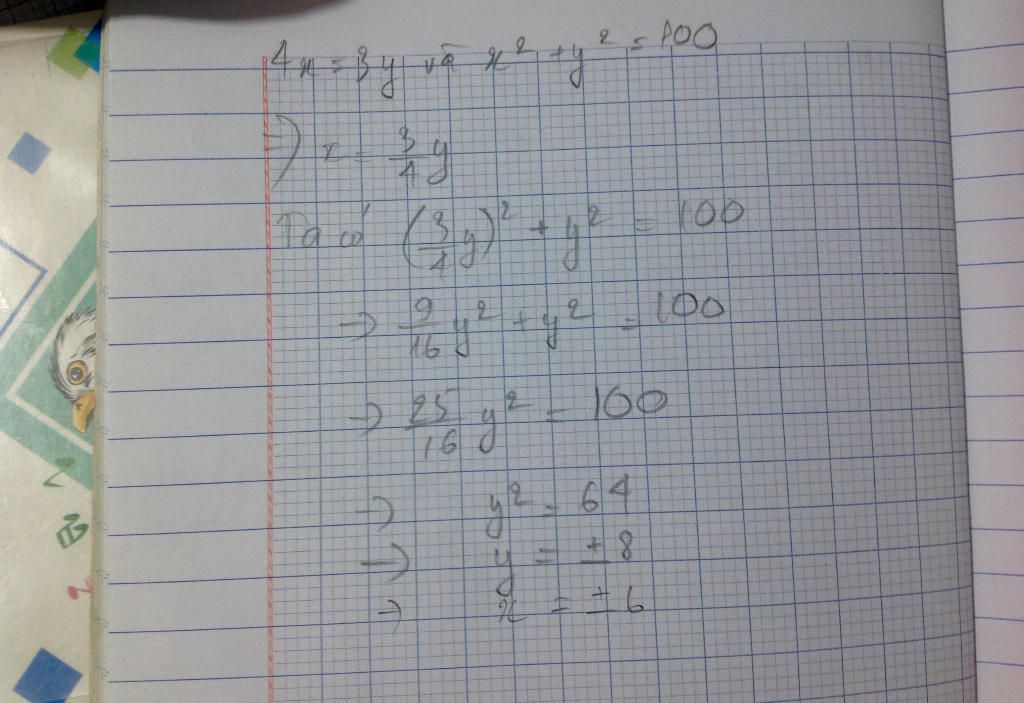 4x = 3y và x² + y² = 100
⇒ x = 3/4 y
Ta có (3/4 y)² + y² = 100
→ 9/16 y² + y² = 100
→ 25/16 y² = 100
→ y² = 64
→ y = ±8
→ x = ±6